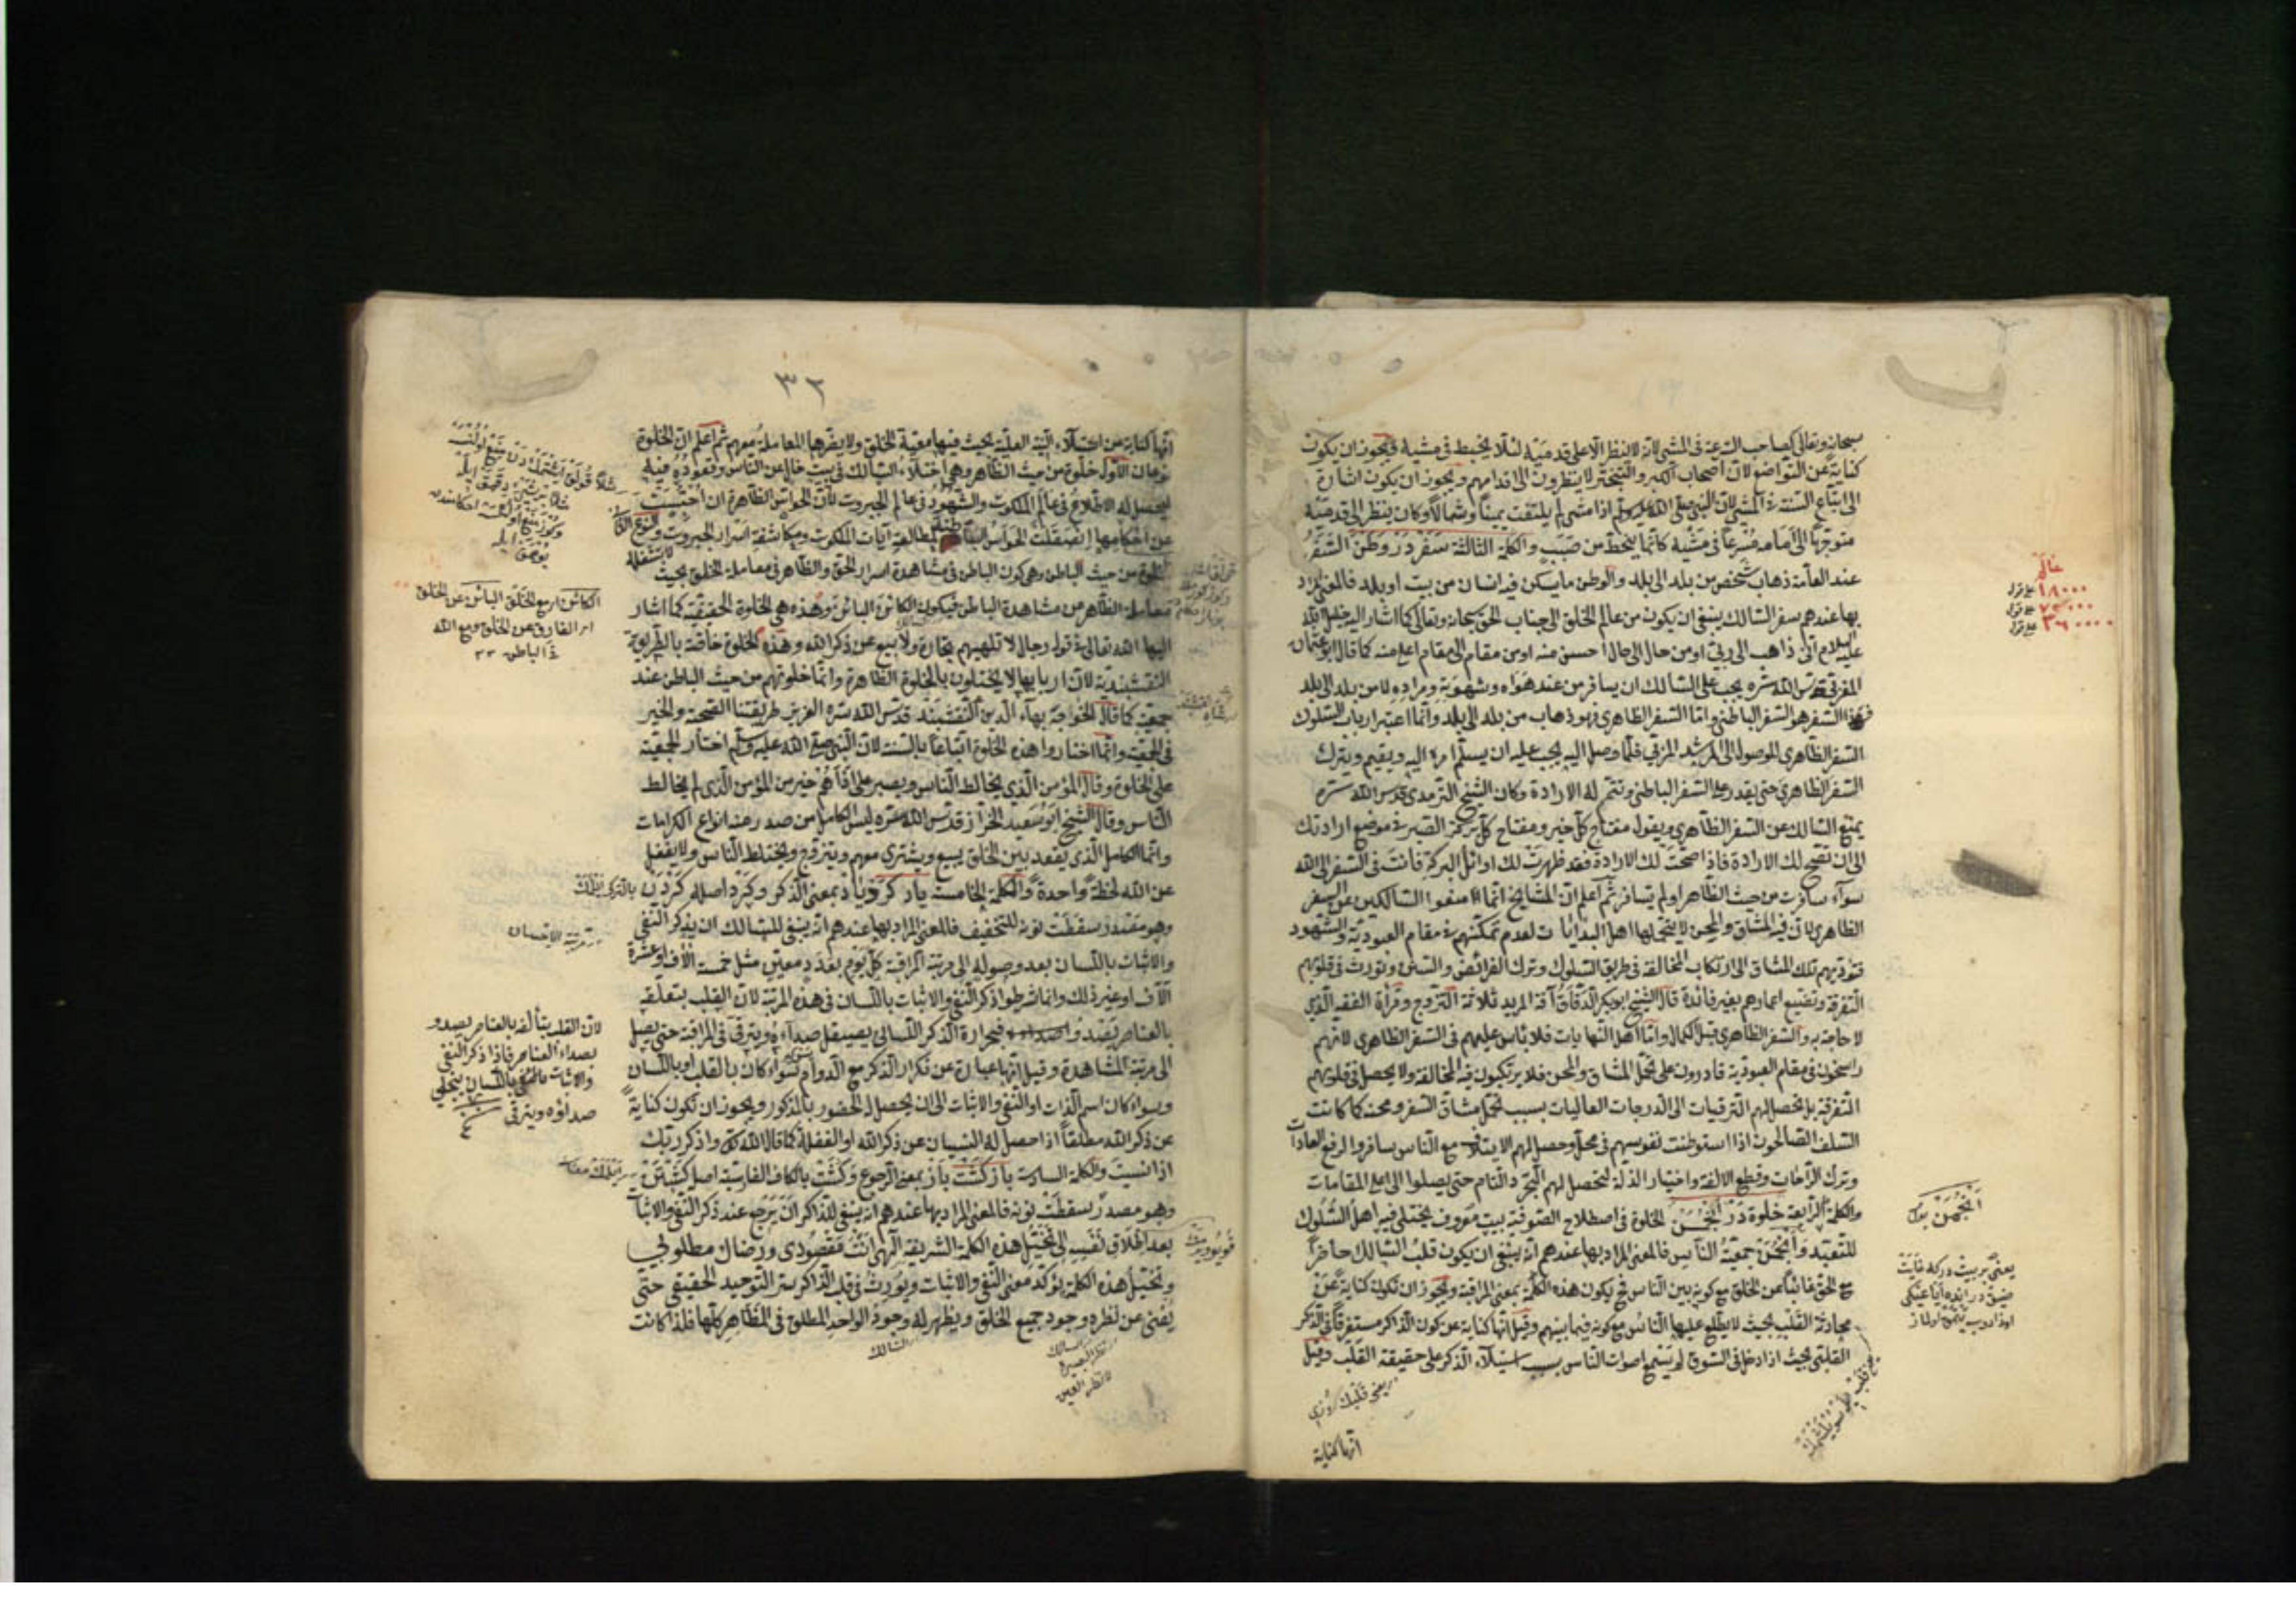 سبحانه وتعالى كصاحب السرعة في المشي لانه لا ينظر الا على قدميه لئلا يخبط في مشيه ويجوز ان يكون
كناية عن التواضع لان اصحاب الكبر والتبختر لا ينظرون الى اقدامهم ويجوز ان يكون اشارة
الى اتباع السنة في المشي لان النبي صلى الله عليه وسلم اذا مشى لم يلتفت يميناً وشمالاً وكان ينظر الى قدميه
متوجهاً الى امامه مسرعاً في مشيه كانما ينحط من صبب والكلمة الثالثة سفر در وطن السفر
عند العامة ذهاب شخص من بلد الى بلد والوطن ما يسكن فيه انسان من بيت او بلد فالمعنى المراد
بها عندهم سفر السالك ينبغي ان يكون من عالم الخلق الى جناب الحق سبحانه وتعالى كما اشار اليه خليل الله
عليه السلام اني ذاهب الى ربي او من حال الى حال احسن منه او من مقام الى مقام اعلى منه كما قال ابو عثمان
المغربي قدس الله سره يجب على السالك ان يسافر من عند هواه وشهوته ومراده لا من بلد الى بلد
فهذا السفر هو السفر الباطني واما السفر الظاهري فهو ذهاب من بلد الى بلد وانما اعتبر ارباب السلوك
السفر الظاهري للوصول الى المرشد المربي فلما وصل اليه يجب عليه ان يسلم امره اليه ويقيم ويترك
السفر الظاهري حتى يقدر على السفر الباطني وتتم له الارادة وكان الشيخ الترمدي قدس الله سره
يمنع السالك عن السفر الظاهري ويقول مفتاح كل خير ومفتاح كل بركة الصبر في موضع ارادتك
الى ان تصح لك الارادة فاذا صحت لك الارادة فقد ظهرت لك اوائل البركة فانت في السفر الى الله
سواء سافرت من حيث الظاهر او لم تسافر ثم اعلم ان المشايخ انما منعوا السالكين عن السفر
الظاهري لان فيه المشاق والمحن لا يتحملها اهل البدايات لعدم تمكنهم في مقام العبودية والشهود
فتؤديهم تلك المشاق الى ارتكاب المخالفة في طريق السلوك وترك الفرائض والسنن وتورث في قلوبهم
التفرقة وتضييع اعمارهم بغير فائدة قال الشيخ ابو بكر الدقاق آفة المريد ثلاثة التزوج وقراة الفقه الذي
لا حاجة به والسفر الظاهري قبل الكمال واما اهل النهايات فلا باس عليهم في السفر الظاهري لانهم
راسخون في مقام العبودية قادرون على تحمل المشاق والمحن فلا يرتكبون فيه المخالفة ولا يحصل في قلوبهم
التفرقة بل تحصل لهم الترقيات الى الدرجات العاليات بسبب تحمل مشاق السفر ومحنه كما كانت
السلف الصالحون اذا استوطنت نفوسهم في محل وحصل لهم الايتلاف مع الناس سافروا لرفع العادات
وترك الراحات وقطع الالفة واختيار الذلة لتحصل لهم التجرد التام حتى يصلوا الى اعلى المقامات
والكلمة الرابعة خلوة در انجمن الخلوة في اصطلاح الصوفية بيت معروف يختلي فيه اهل السلوك
للتعبد وانجمن جمعية الناس فالمعنى المراد بها عندهم انه ينبغي ان يكون قلب السالك حاضراً
مع الحق غائباً عن الخلق مع كونه بين الناس فح يكون هذه الكلمة بمعنى المراقبة ويجوز ان تكون كناية عن
محادثة القلب بحيث لا يطلع عليها الناس مع كونه فيما بينهم وقيل انها كناية عن كون الذاكر مستغرقاً في الذكر
القلبي بحيث اذا دخل في السوق لم يسمع اصوات الناس بسبب استيلاء الذكر على حقيقة القلب وقيل
انها كناية
عالم
١٨٠٠٠ على قول
٧٢٠٠٠ على قول
٣٦٠٠٠٠ على قول
٣٢
انها كناية من اختلاء البتة القلبية بحيث فيها معية الخلق ولا يضرها المعاملة معهم ثم اعلم ان الخلوة
نوعان الاول خلوة من حيث الظاهر وهي اختلاء السالك في بيت خال عن الناس وقعوده فيه
ليحصل له الاطلاع في عالم الملكوت والشهود في عالم الجبروت لان الحواس الظاهرة ان احتبست
عن احكامها انصقلت الحواس الباطنة لمطالعة آيات الملكوت ومكاشفة اسرار الجبروت والنوع الثاني
الخلوة من حيث الباطن وهي كون الباطن في مشاهدة اسرار الحق والظاهر في معاملة الخلق بحيث لا تشغله
معاملة الظاهر من مشاهدة الباطن فيكون الكائن البائن وهذه هي الخلوة الحقيقية كما اشار
اليها الله تعالى في قوله رجال لا تلهيهم تجارة ولا بيع عن ذكر الله وهذه الخلوة خاصة بالطريقة
النقشبندية لان اربابها لا يختلون بالخلوة الظاهرة وانما خلوتهم من حيث الباطن عند
جمعية كما قال الخواجة بهاء الدين النقشبند قدس الله سره العزيز طريقتنا الصحبة والخير
في الجمعية وانما اختاروا هذه الخلوة اتباعاً بالسنة لان النبي صلى الله عليه وسلم اختار الجمعية
على الخلوة وقال المؤمن الذي يخالط الناس ويصبر على اذاهم خير من المؤمن الذي لم يخالط
الناس وقال الشيخ ابو سعيد الخراز قدس الله سره ليس الكامل من صدر منه انواع الكرامات
وانما الكامل الذي يقعد بين الخلق يبيع ويشتري معهم ويتزوج ويختلط الناس ولا يغفل
عن الله لحظة واحدة والكلمة الخامسة ياد كرد ياد بمعنى الذكر وكرد اصله كردن
وهو مصدر سقطت نونه للتخفيف فالمعنى المراد بها عندهم انه ينبغي للسالك ان يذكر النفي
والاثبات باللسان بعد وصوله الى مرتبة المراقبة كل يوم بعدد معين مثل خمسة آلاف او عشرة
آلاف او غير ذلك وانما شرطوا ذكر النفي والاثبات باللسان في هذه المرتبة لان القلب بتعلقه
بالعناصر يصدو فبحرارة الذكر اللساني يصيقل صداءه ويترقى في المراقبة حتى يصل
الى مرتبة المشاهدة وقيل انها عبارة عن تكرار الذكر مع الدوام وسواء كان بالقلب او باللسان
وسواء كان اسم الذات او النفي والاثبات الى ان يحصل له الحضور بالمذكور ويجوز ان تكون كناية
عن ذكر الله مطلقاً اذا حصل له النسيان عن ذكر الله او الغفلة كما قال الله تعالى واذكر ربك
اذا نسيت والكلمة السادسة باز كشت باز بمعنى الرجوع وكشت بالكاف الفارسية اصله كشتن
وهو مصدر سقطت نونه فالمعنى المراد بها عندهم انه ينبغي للذاكر ان يرجع عند ذكر النفي والاثبات
بعد اطلاق نفسه الى تخييل هذه الكلمة الشريفة الهي انت مقصودي ورضاك مطلوبي
وتخييل هذه الكلمة يؤكد معنى النفي والاثبات ويورث في قلب الذاكر سر التوحيد الحقيقي حتى
يفنى عن نظره وجود جميع الخلق ويظهر له وجود الواحد المطلق في المظاهر كلها فلذا كانت
الكائن اي مع الخلق البائن عن الخلق
اي الفارق عن الخلق ومع الله
في الباطن
لان القلب يتألفه بالعناصر يصدو
بصداء العناصر فاذا ذكر النفي
والاثبات باللسان ينجلي
صداؤه ويترقى